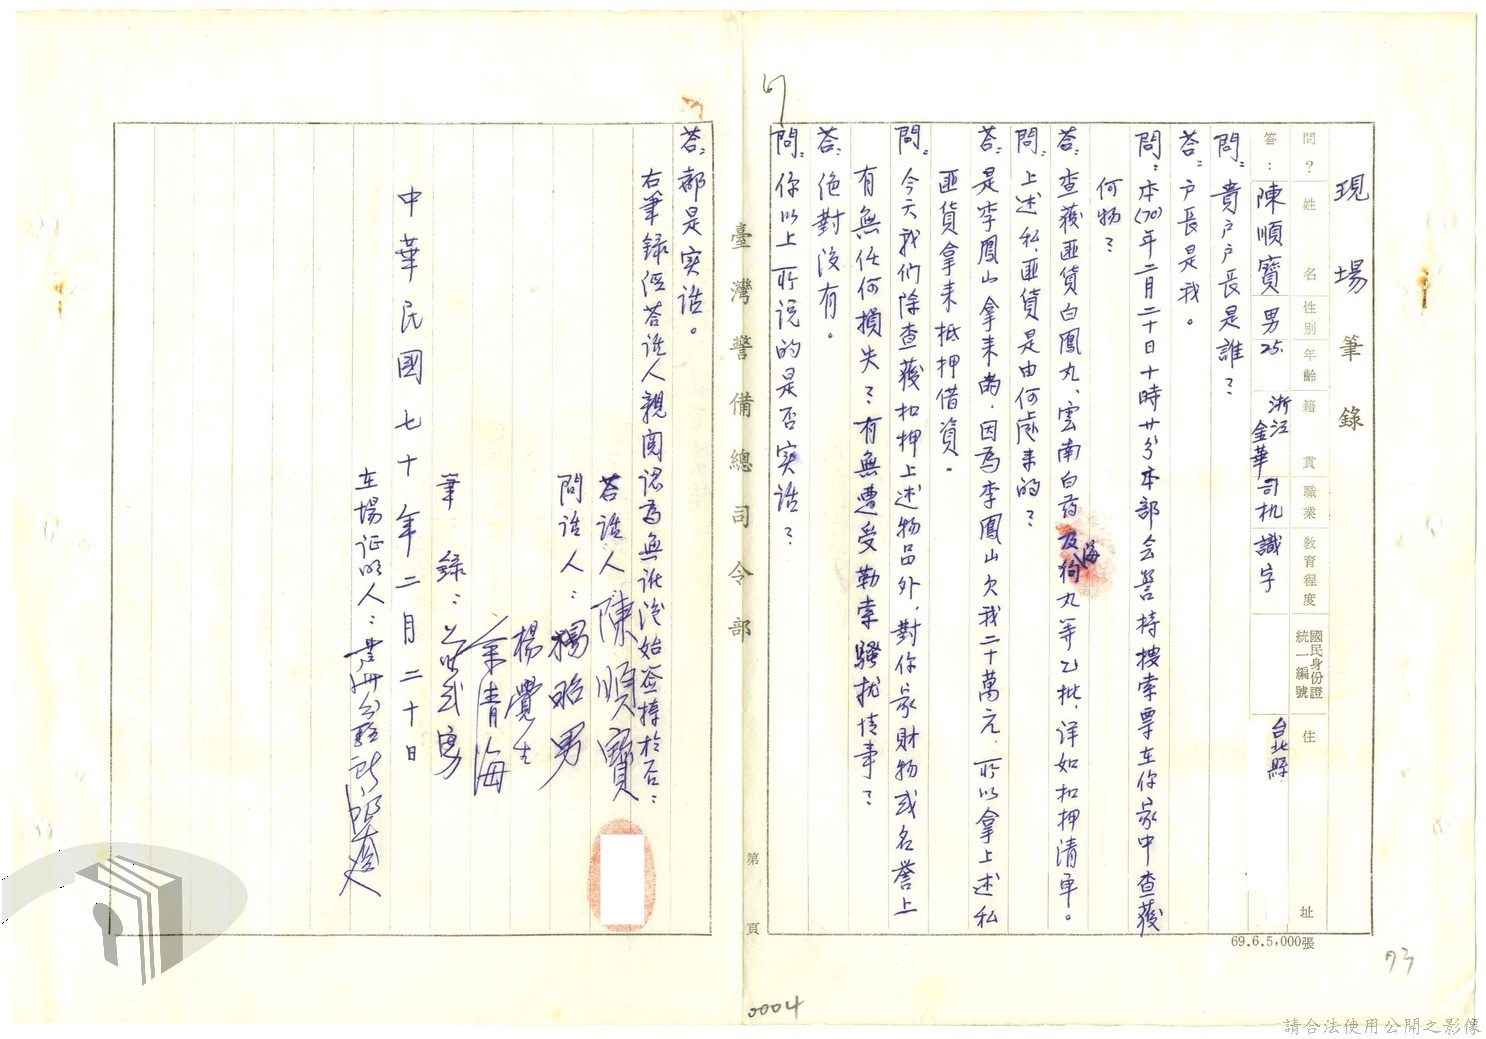 現場筆錄
問？姓名 性別 年齡 籍貫 職業 教育程度 國民身份證統一編號 住址
答：陳順寶 男 25. 浙江金華 司机 識字 台北縣
問：貴戶戶長是誰？
答：戶長是我。
問：本(70)年二月二十日十時廿分本部会警持搜索票在你家中查獲
何物？
答：查獲匪貨白鳳丸、雲南白葯及海狗丸等乙批，详如扣押清单。
問：上述私、匪貨是由何處来的？
答：是李鳳山拿来的，因為李鳳山欠我二十萬元，所以拿上述私
匪貨拿来抵押借資。
問：今天我们除查獲扣押上述物品外，對你家財物或名誉上
有無任何損失？有無遭受勒索騷扰情事？
答：绝對没有。
問：你以上所説的是否实话？
臺灣警備總司令部
第 頁
答：都是实话。
右筆録經答話人親閱認為無訛後始簽捺於后：
答話人 陳順寶
問話人：楊昭男
楊覺生
余青海
筆録：
中華民國七十年二月二十日
在場证明人：
69.6.5,000張
73
0004
請合法使用公開之影像